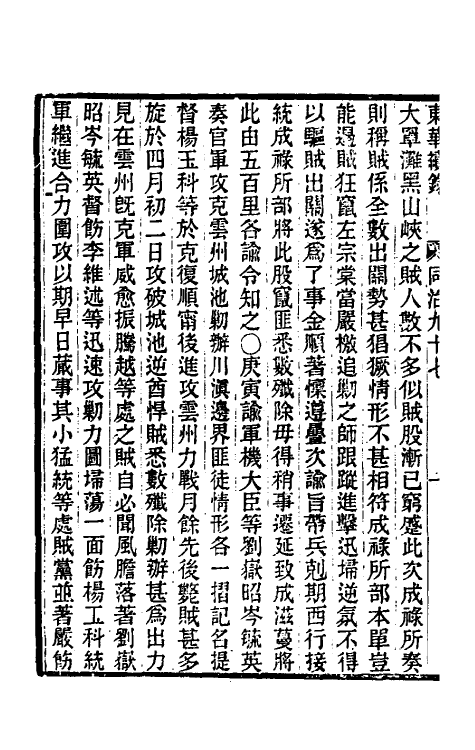 東華續錄　同治九十七
大罩灘黑山峽之賊人數不多似賊股漸已窮蹙此次成祿所奏
則稱賊係全數出關勢甚猖獗情形不甚相符成祿所部本單豈
能遏賊狂竄左宗棠當嚴檄追勦之師跟蹤進擊迅埽逆氛不得
以驅賊出關遂爲了事金順著懍遵疊次諭旨帶兵剋期西行接
統成祿所部將此股竄匪悉數殲除毋得稍事遷延致成滋蔓將
此由五百里各諭令知之〇庚寅諭軍機大臣等劉嶽昭岑毓英
奏官軍攻克雲州城池勦辦川滇邊界匪徒情形各一摺記名提
督楊玉科等於克復順甯後進攻雲州力戰月餘先後斃賊甚多
旋於四月初二日攻破城池逆酋悍賊悉數殲除勦辦甚爲出力
見在雲州旣克軍威愈振騰越等處之賊自必聞風膽落著劉嶽
昭岑毓英督飭李維述等迅速攻勦力圖埽蕩一面飭楊玉科統
軍繼進合力圍攻以期早日蕆事其小猛統等處賊黨並著嚴飭